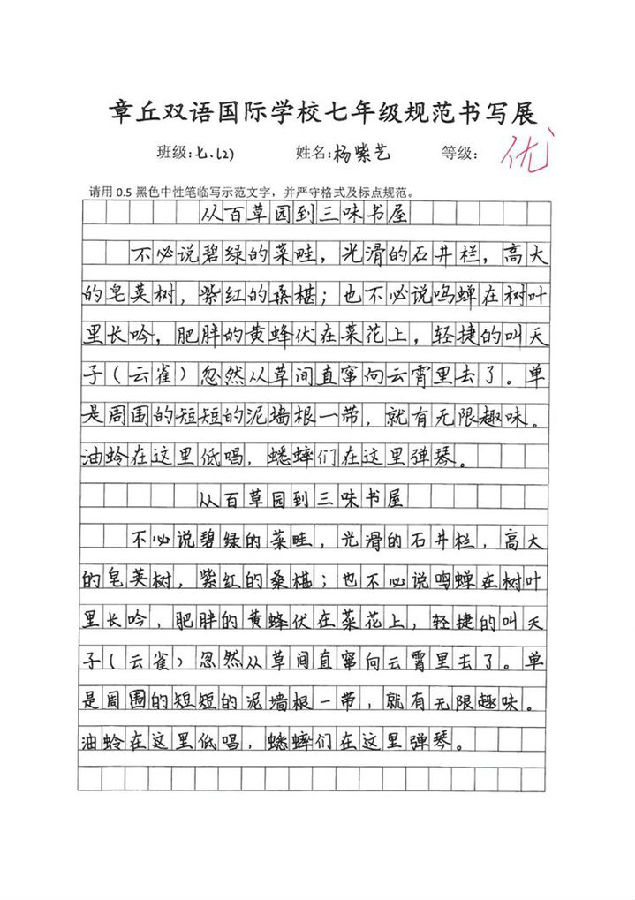 章丘双语国际学校七年级规范书写展
班级:七.(2) 姓名:杨紫艺 等级: 优
请用 0.5 黑色中性笔临写示范文字，并严守格式及标点规范。
从百草园到三味书屋
不必说碧绿的菜畦，光滑的石井栏，高大
的皂荚树，紫红的桑椹；也不必说鸣蝉在树叶
里长吟，肥胖的黄蜂伏在菜花上，轻捷的叫天
子（云雀）忽然从草间直窜向云霄里去了。单
是周围的短短的泥墙根一带，就有无限趣味。
油蛉在这里低唱，蟋蟀们在这里弹琴。
从百草园到三味书屋
不必说碧绿的菜畦，光滑的石井栏，高大
的皂荚树，紫红的桑椹；也不必说鸣蝉在树叶
里长吟，肥胖的黄蜂伏在菜花上，轻捷的叫天
子（云雀）忽然从草间直窜向云霄里去了。单
是周围的短短的泥墙根一带，就有无限趣味。
油蛉在这里低唱，蟋蟀们在这里弹琴。